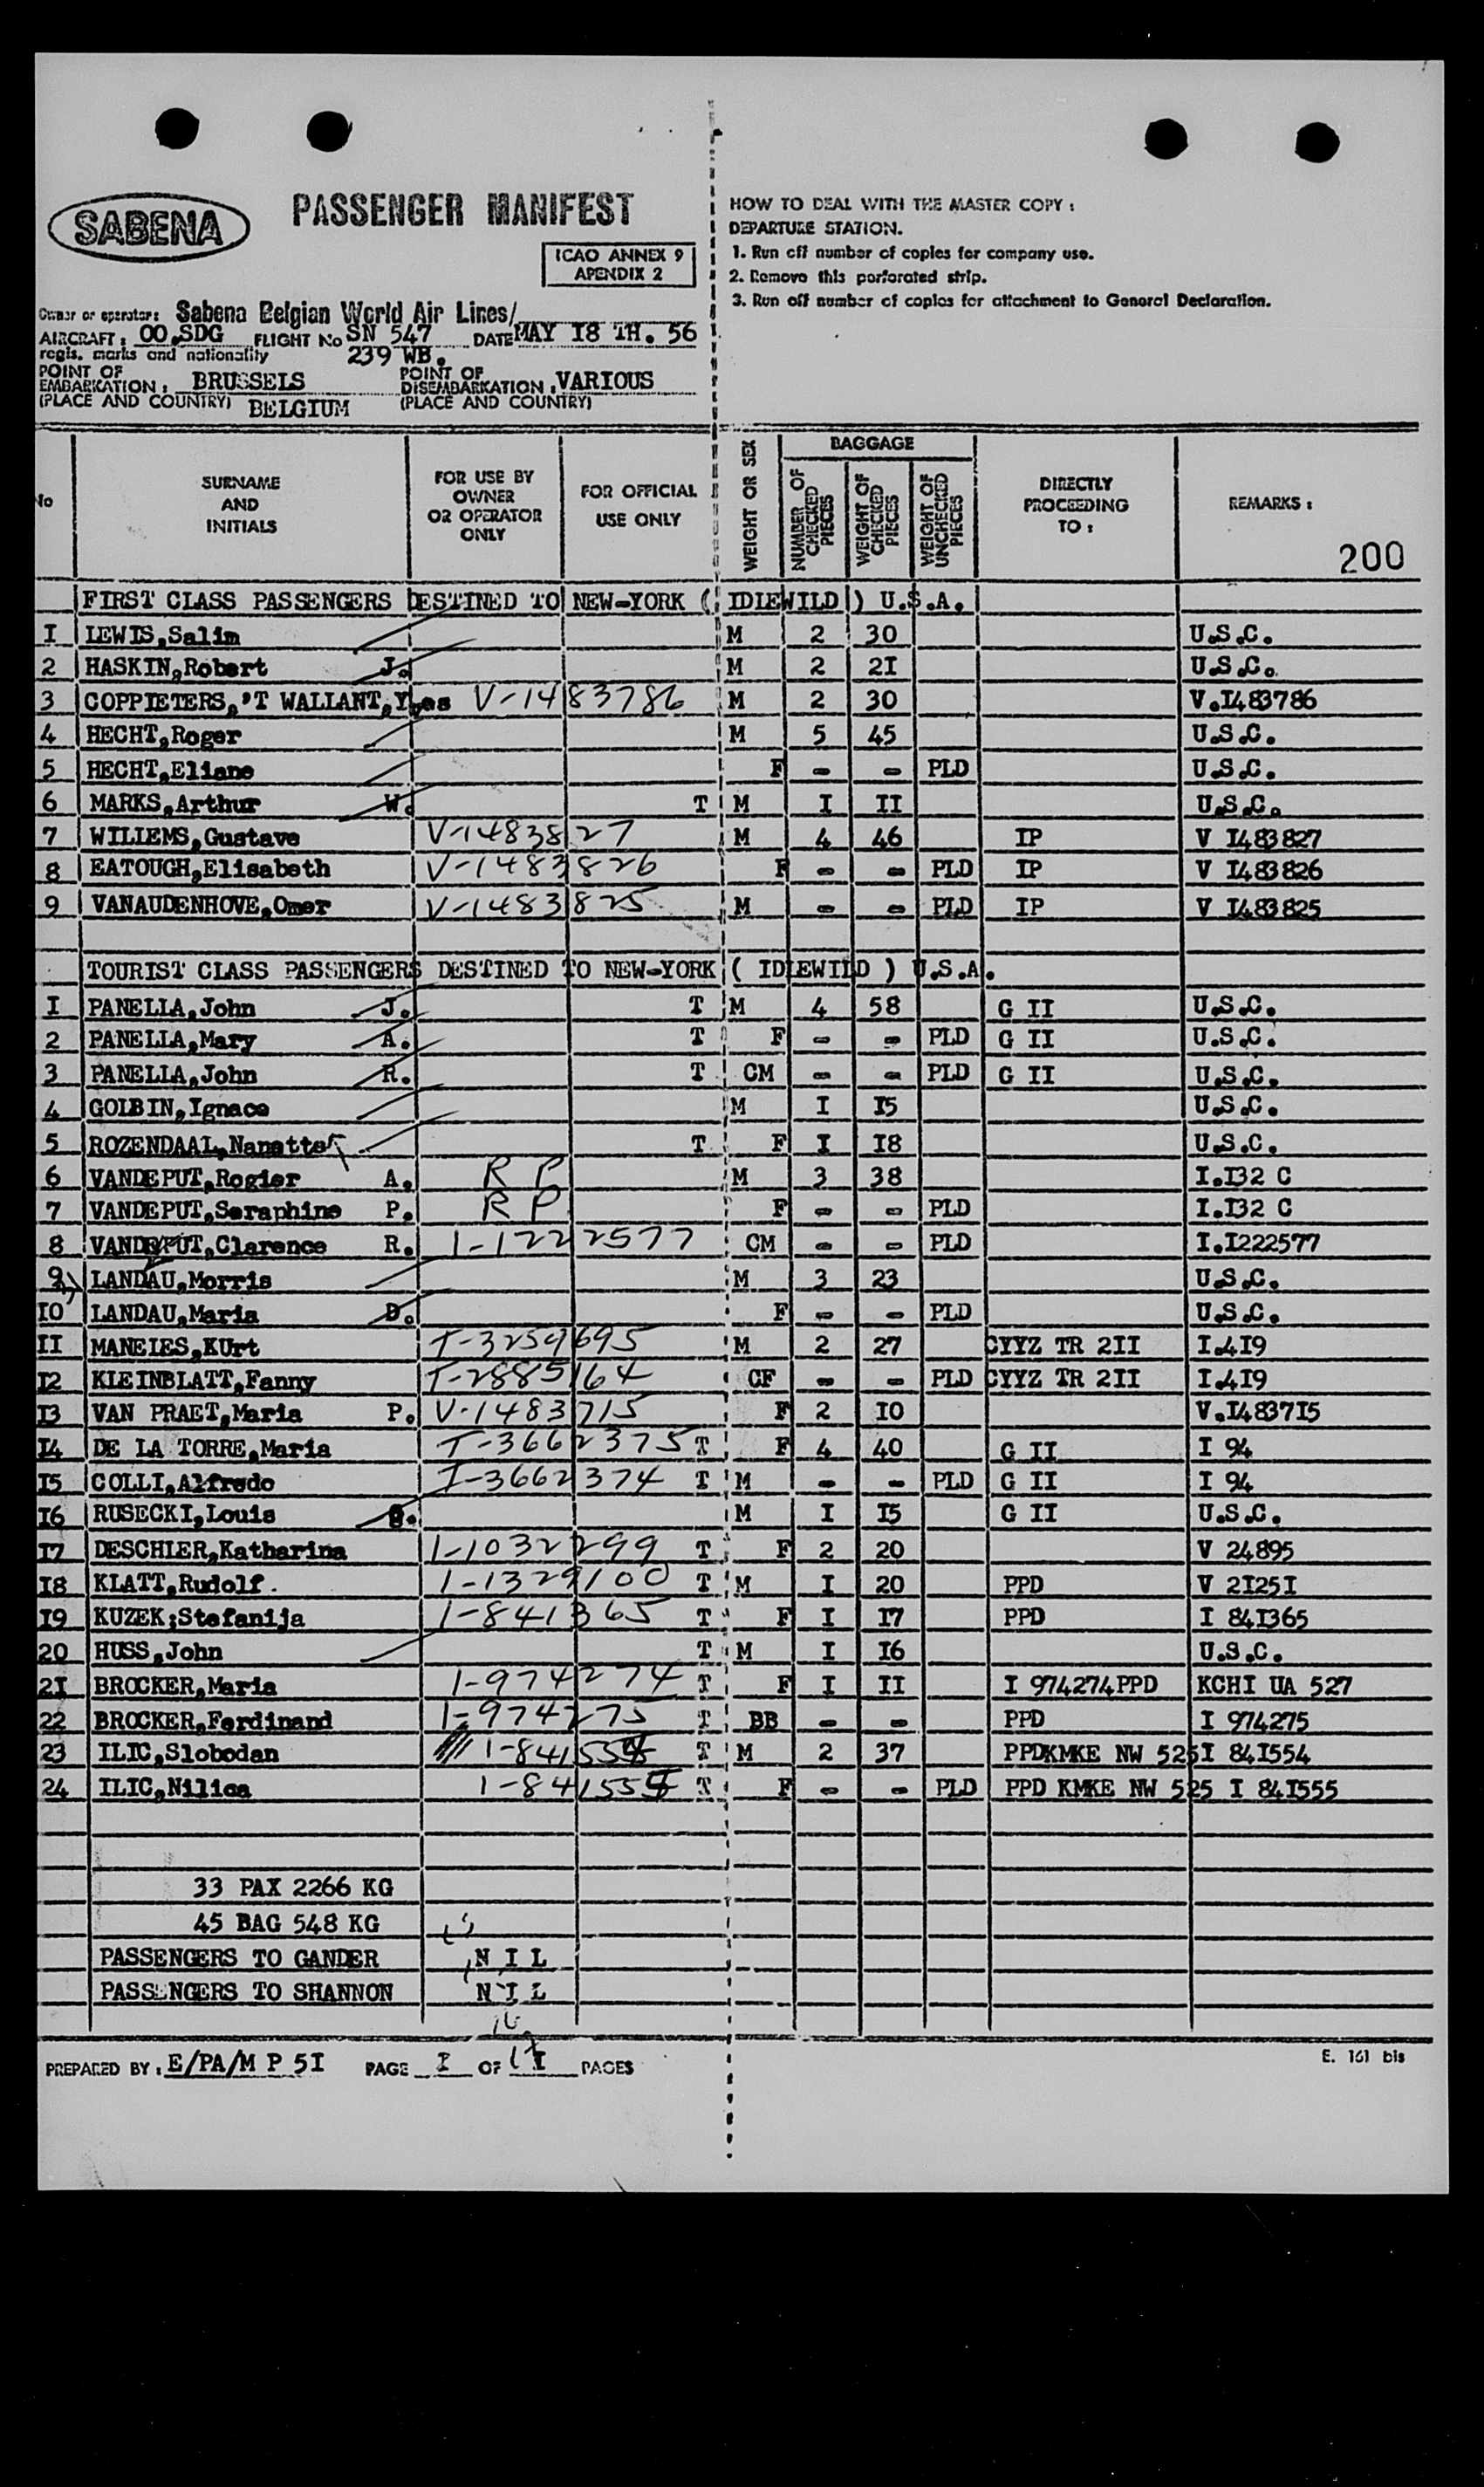 SABENA
PASSENGER MANIFEST
ICAO ANNEX 9
APENDIX 2
HOW TO DEAL WITH THE MASTER COPY :
DEPARTURE STATION.
1. Run off number of copies for company use.
2. Remove this perforated strip.
3. Run off number of copies for attachment to General Declaration.
Owner or operator: Sabena Belgian World Air Lines/
AIRCRAFT : OO.SDG FLIGHT No SN 547 DATE MAY I8 TH. 56
regis. marks and nationality 239 WB.
POINT OF EMBARKATION : BRUSSELS POINT OF DISEMBARKATION : VARIOUS
(PLACE AND COUNTRY) BELGIUM (PLACE AND COUNTRY)
No SURNAME AND INITIALS FOR USE BY OWNER OR OPERATOR ONLY FOR OFFICIAL USE ONLY WEIGHT OR SEX BAGGAGE NUMBER OF CHECKED PIECES WEIGHT OF CHECKED PIECES WEIGHT OF UNCHECKED PIECES DIRECTLY PROCEEDING TO : REMARKS :
200
FIRST CLASS PASSENGERS DESTINED TO NEW-YORK ( IDIEWILD ) U.S.A.
I LEWIS,Salim M 2 30 U.S.C.
2 HASKIN,Robert J. M 2 2I U.S.C.
3 COPPIETERS,'T WALLANT,Yves V-1483786 M 2 30 V.I483786
4 HECHT,Roger M 5 45 U.S.C.
5 HECHT,Eliane F - - PLD U.S.C.
6 MARKS,Arthur W. T M I II U.S.C.
7 WILLEMS,Gustave V-1483827 M 4 46 IP V I483827
8 EATOUGH,Elisabeth V-1483826 F - - PLD IP V I483826
9 VANAUDENHOVE,Omer V-1483825 M - - PLD IP V I483825
TOURIST CLASS PASSENGERS DESTINED TO NEW-YORK ( IDLEWILD ) U.S.A.
I PANELLA,John J. T M 4 58 G II U.S.C.
2 PANELLA,Mary A. T F - - PLD G II U.S.C.
3 PANELLA,John R. T CM - - PLD G II U.S.C.
4 GOLBIN,Ignace M I I5 U.S.C.
5 ROZENDAAL,Nanette T F I I8 U.S.C.
6 VANDEPUT,Rogier A. R P M 3 38 I.I32 C
7 VANDEPUT,Seraphine P. R P F - - PLD I.I32 C
8 VANDEPUT,Clarence R. 1-1222577 CM - - PLD I.I222577
9 LANDAU,Morris M 3 23 U.S.C.
IO LANDAU,Maria D. F - - PLD U.S.C.
II MANEIES,KUrt T-3259695 M 2 27 CYYZ TR 2II I.4I9
I2 KLEINBLATT,Fanny T-2885164 CF - - PLD CYYZ TR 2II I.4I9
I3 VAN PRAET,Maria P. V-1483715 F 2 IO V.I4837I5
I4 DE LA TORRE,Maria T-3662375 T F 4 40 G II I 94
I5 COLLI,Alfredo T-3662374 T M - - PLD G II I 94
I6 RUSECKI,Louis M I I5 G II U.S.C.
I7 DESCHLER,Katharina 1-1032299 T F 2 20 V 24895
I8 KLATT,Rudolf. 1-1329100 T M I 20 PPD V 2I25I
I9 KUZEK;Stefanija 1-841365 T F I I7 PPD I 84I365
20 HUSS,John T M I I6 U.S.C.
2I BROCKER,Maria 1-974274 T F I II I 974274PPD KCHI UA 527
22 BROCKER,Ferdinand 1-974275 T BB - - PPD I 974275
23 ILIC,Slobodan 1-841554 T M 2 37 PPDKMKE NW 525I 84I554
24 ILIC,Nilica 1-841555 T F - - PLD PPD KMKE NW 525 I 84I555
33 PAX 2266 KG
45 BAG 548 KG
PASSENGERS TO GANDER N I L
PASSENGERS TO SHANNON N I L
PREPARED BY : E/PA/M P 5I PAGE I OF I PAGES
E. 161 bis